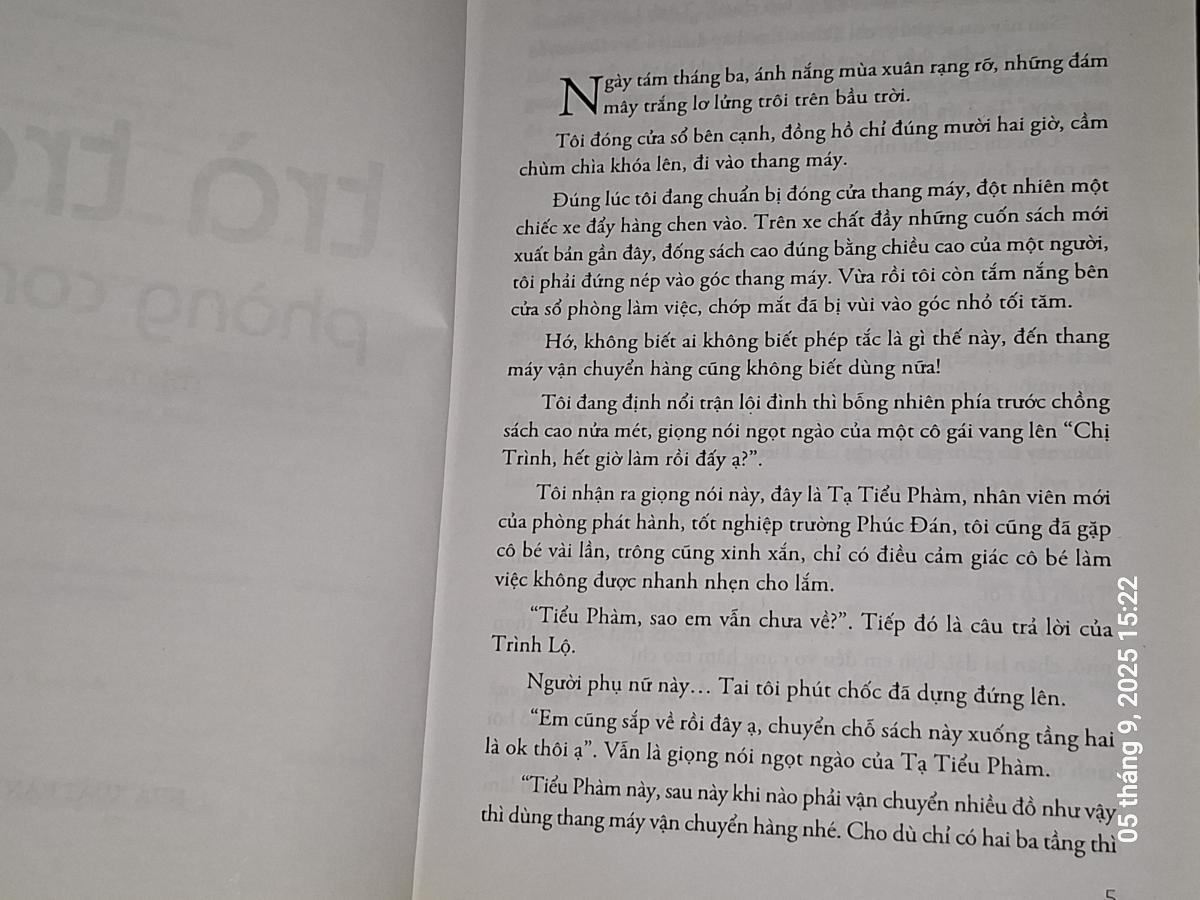 Ngày tám tháng ba, ánh nắng mùa xuân rạng rỡ, những đám
mây trắng lơ lửng trôi trên bầu trời.
Tôi đóng cửa sổ bên cạnh, đồng hồ chỉ đúng mười hai giờ, cầm
chùm chìa khóa lên, đi vào thang máy.
Đúng lúc tôi đang chuẩn bị đóng cửa thang máy, đột nhiên một
chiếc xe đẩy hàng chen vào. Trên xe chất đầy những cuốn sách mới
xuất bản gần đây, đống sách cao đúng bằng chiều cao của một người,
tôi phải đứng nép vào góc thang máy. Vừa rồi tôi còn tắm nắng bên
cửa sổ phòng làm việc, chớp mắt đã bị vùi vào góc nhỏ tối tăm.
Hớ, không biết ai không biết phép tắc là gì thế này, đến thang
máy vận chuyển hàng cũng không biết dùng nữa!
Tôi đang định nổi trận lôi đình thì bỗng nhiên phía trước chồng
sách cao nửa mét, giọng nói ngọt ngào của một cô gái vang lên “Chị
Trình, hết giờ làm rồi đấy ạ?”.
Tôi nhận ra giọng nói này, đây là Tạ Tiểu Phàm, nhân viên mới
của phòng phát hành, tốt nghiệp trường Phúc Đán, tôi cũng đã gặp
cô bé vài lần, trông cũng xinh xắn, chỉ có điều cảm giác cô bé làm
việc không được nhanh nhẹn cho lắm.
“Tiểu Phàm, sao em vẫn chưa về?”. Tiếp đó là câu trả lời của
Trình Lộ.
Người phụ nữ này... Tai tôi phút chốc đã dựng đứng lên.
“Em cũng sắp về rồi đây ạ, chuyển chỗ sách này xuống tầng hai
là ok thôi ạ”. Vẫn là giọng nói ngọt ngào của Tạ Tiểu Phàm.
“Tiểu Phàm này, sau này khi nào phải vận chuyển nhiều đồ như vậy
thì dùng thang máy vận chuyển hàng nhé. Cho dù chỉ có hai ba tầng thì
5
05 tháng 9, 2025 15:22